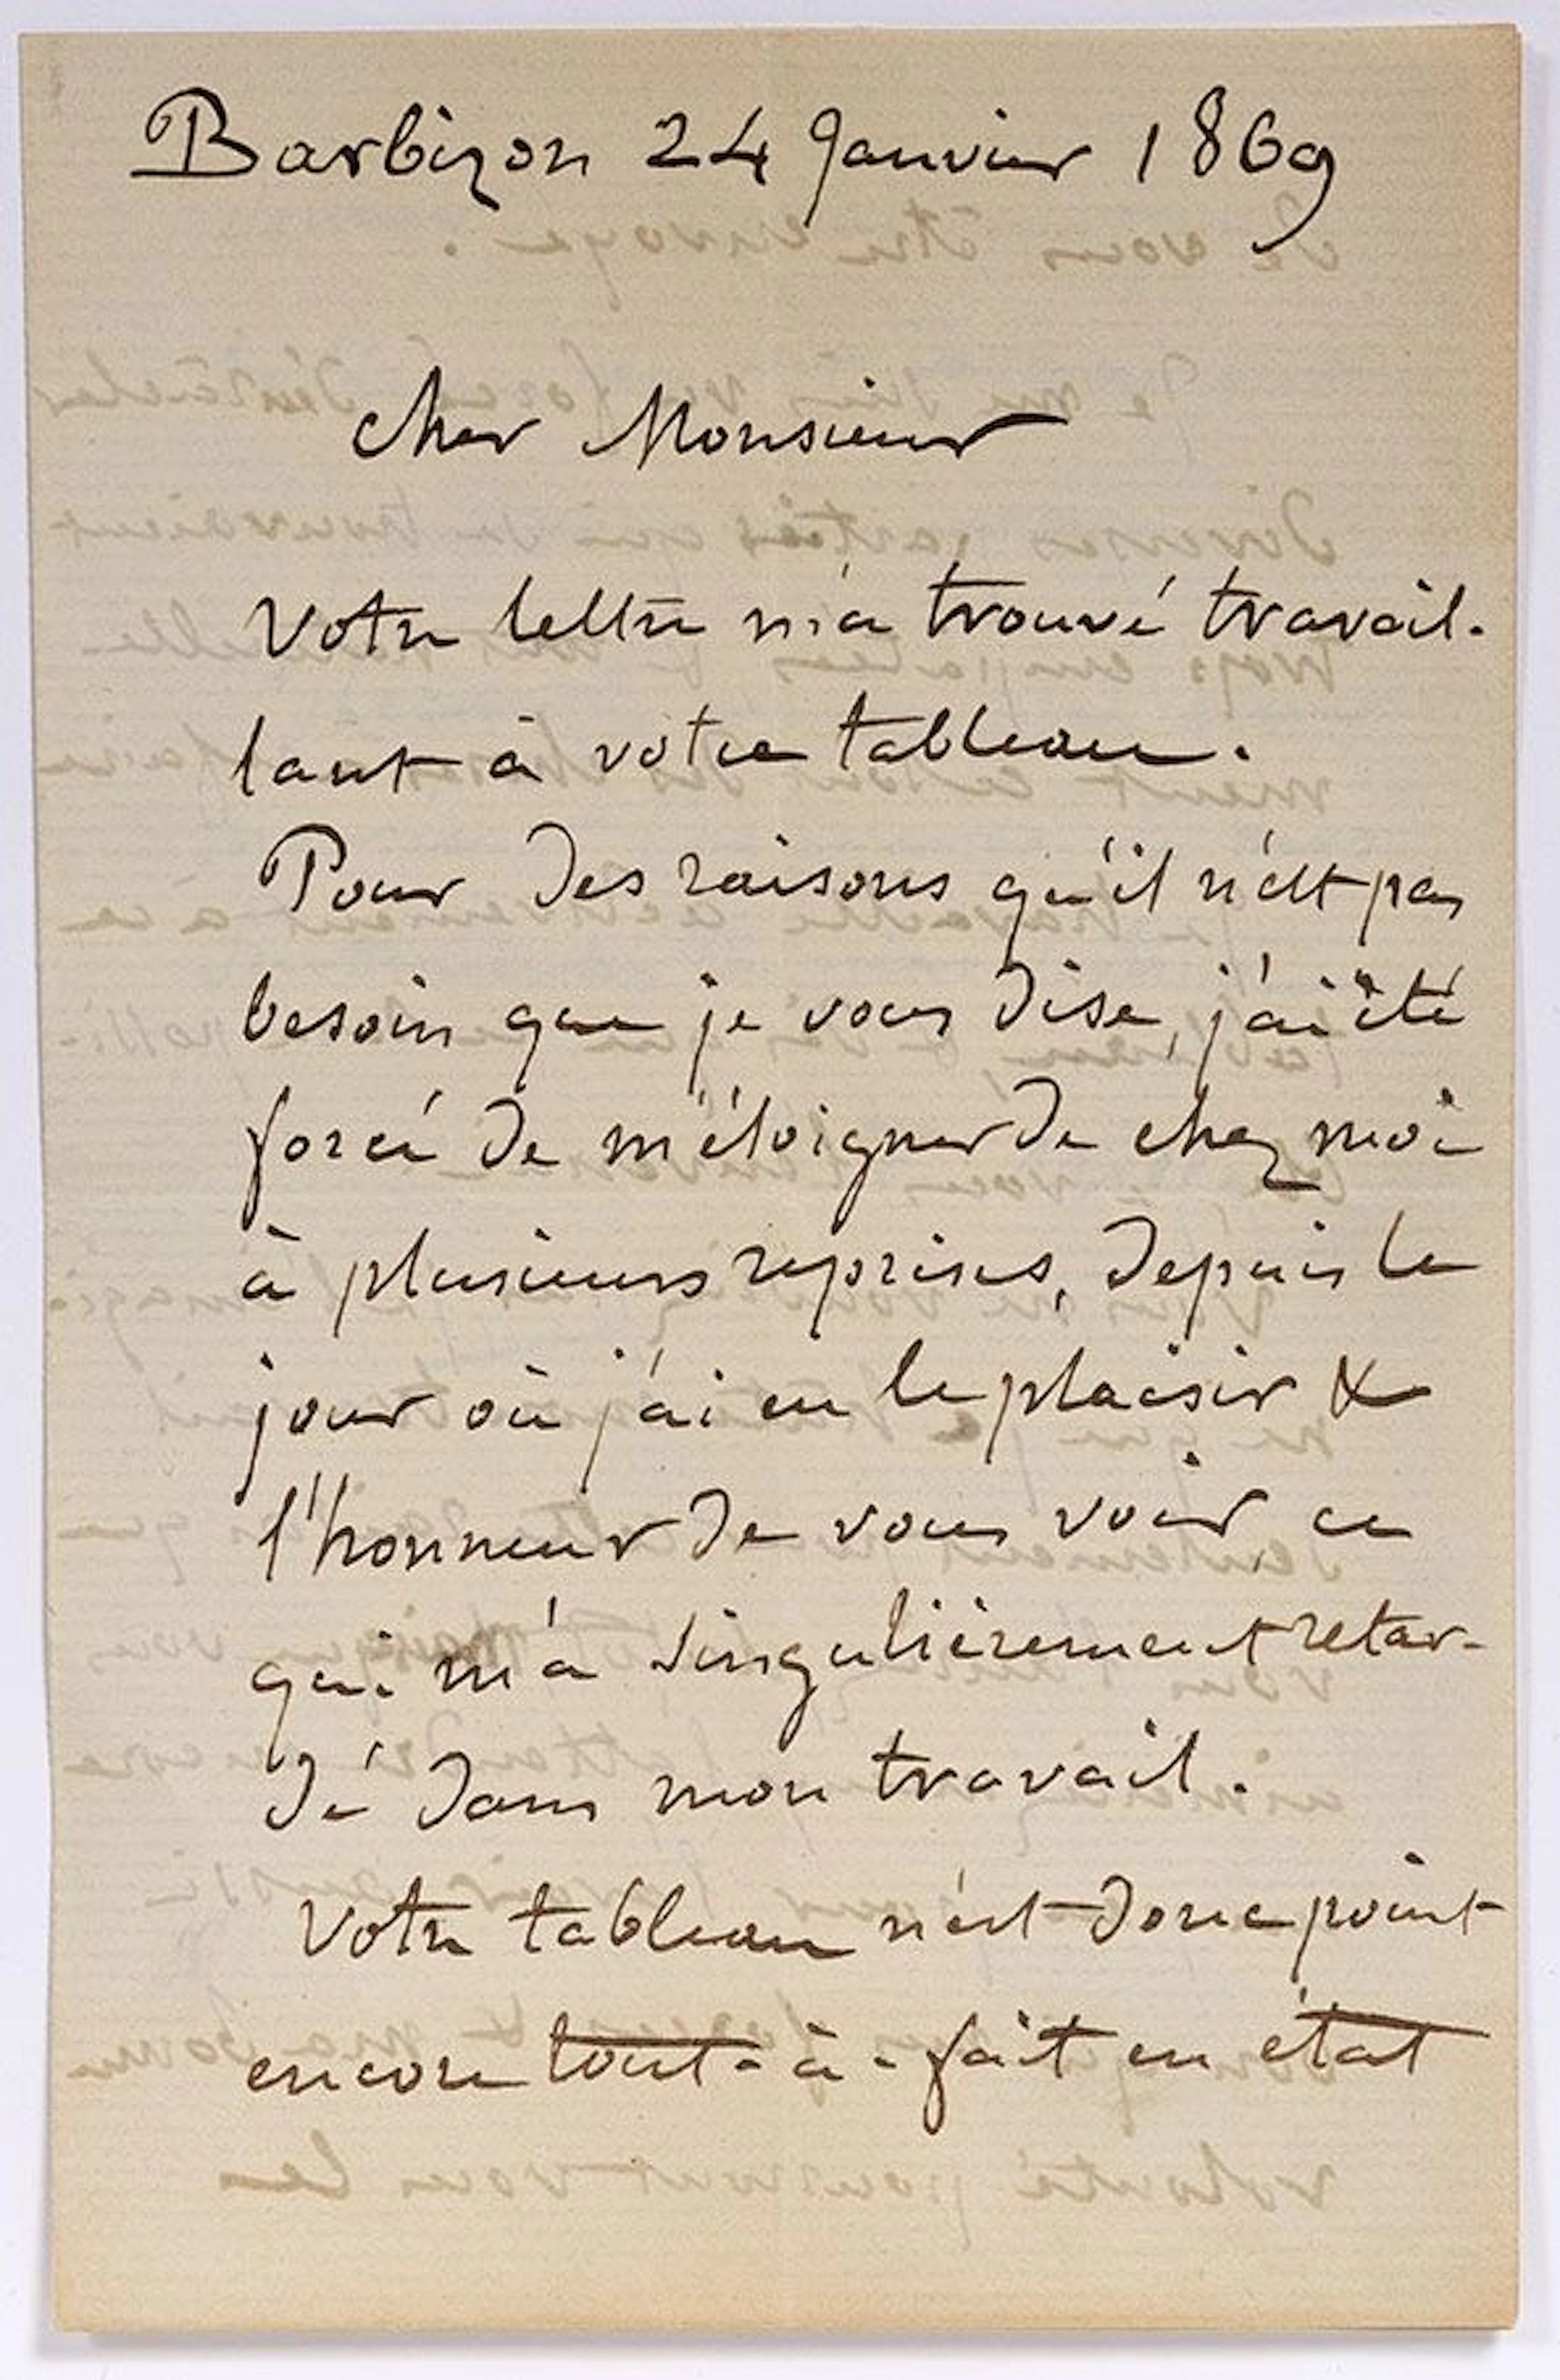 Barbizon 24 Janvier 1869
Cher Monsieur
Votre lettre m'a trouvé travail-
lant à votre tableau.
Pour des raisons qu'il n'est pas
besoin que je vous dise, j'ai été
forcé de m'éloigner de chez moi
à plusieurs reprises, depuis le
jour où j'ai eu le plaisir &
l'honneur de vous voir, ce
qui m'a singulièrement retar-
dé dans mon travail.
Votre tableau n'est donc point
encore tout-à-fait en état